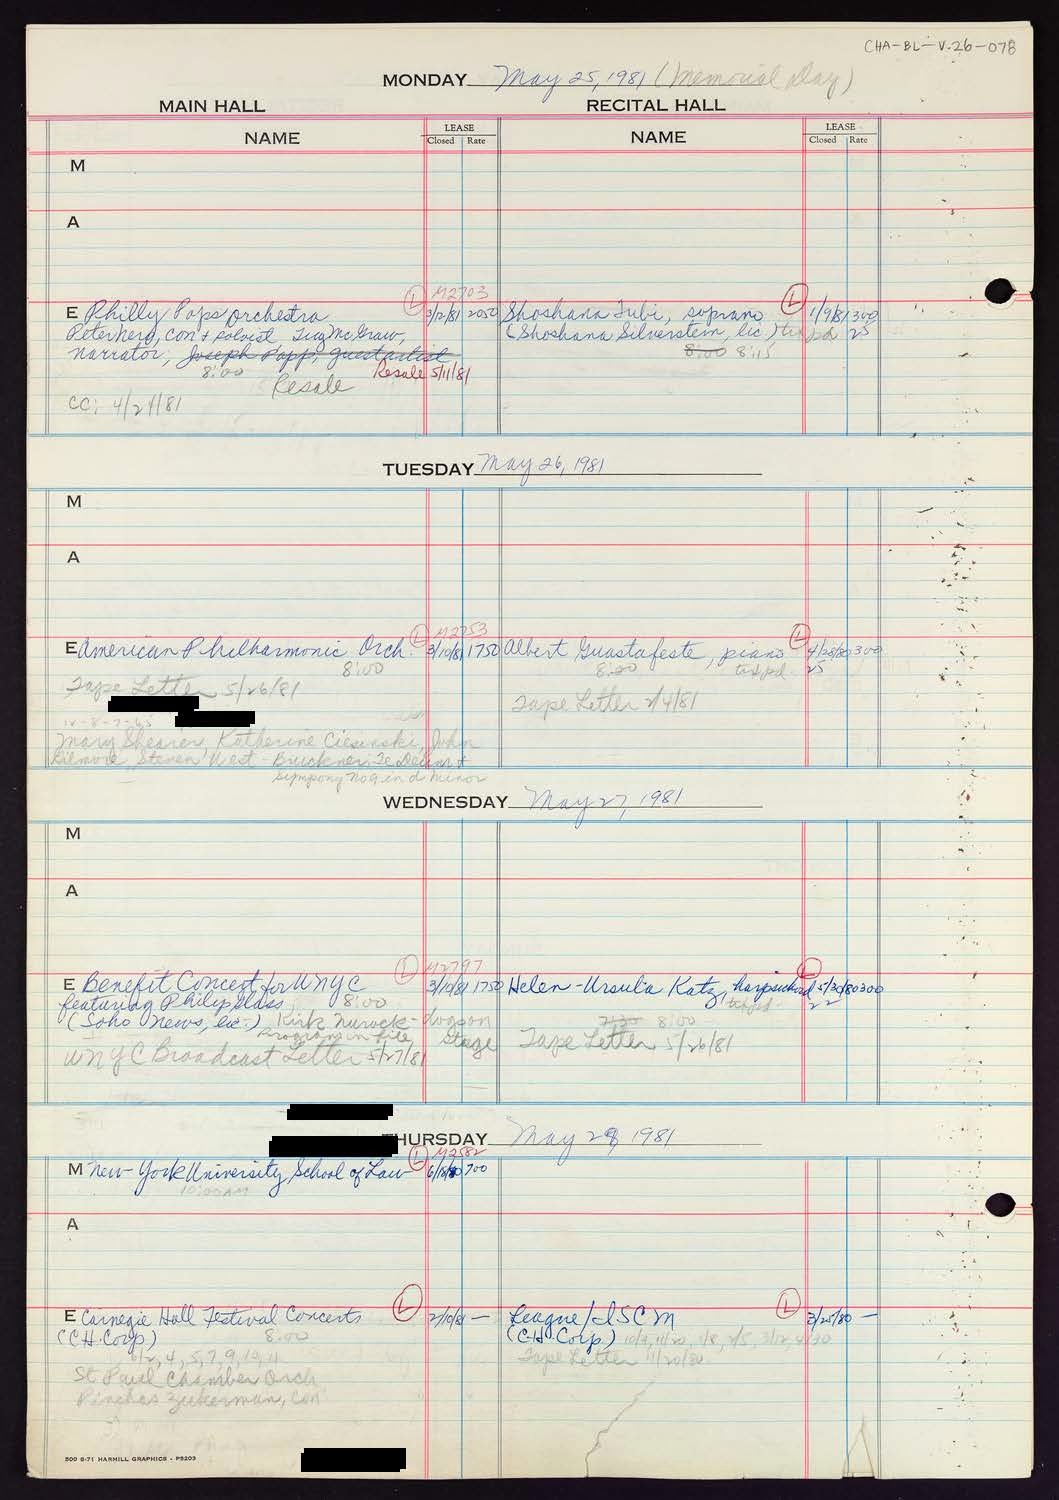 CHA-BL-V.26-078
MONDAY May 25, 1981 (Memorial Day)
MAIN HALL
RECITAL HALL
NAME
LEASE
Closed Rate
NAME
LEASE
Closed Rate
M
A
M2703
E Philly Pops Orchestra L 3/12/81 2050
Peter Nero, con + soloist Tug McGraw,
narrator, Joseph Papp, guest artist
8:00 Resale 5/11/81
Resale
CC: 4/24/81
Shoshana Tubi, soprano L 1/9/81 300
(Shoshana Silverstein, lic.) tax pd 25
8:00 8:15
TUESDAY May 26, 1981
M
A
M2753
E American Philharmonic Orch. L 3/10/81 1750
8:00
Tape Letter 5/26/81
Mary Shearer, Katherine Ciesinski, John
Gilmore, Steven West - Bruckner: Te Deum +
Sympony No 9 in d minor
Albert Guastafeste, piano L 4/28/80 300
8:00 tax pd. 25
Tape Letter 2/4/81
WEDNESDAY May 27, 1981
M
A
M2797
E Benefit Concert for WNYC L 3/10/81 1750
featuring Philip Glass 8:00
(Soho News, lic.) Kirk Nurock - dogs on
Program in file, Stage
WNYC Broadcast Letter 5/27/81
Helen-Ursula Katz, harpsichord L 5/30/80 300
tax pd 22
7:30 8:00
Tape Letter 5/26/81
THURSDAY May 28, 1981
M2582
M New York University School of Law L 6/18/80 700
10:00 AM
A
E Carnegie Hall Festival Concerts L 2/10/81 —
(CH. Corp) 8:00
6/2, 4, 5, 7, 9, 10, 11
St Paul Chamber Orch
Pinchas Zukerman, con
League/ISCM L 3/25/80 —
(CH Corp.) 10/9, 11/20, 1/8, 2/5, 3/12, 4/30
Tape Letter 11/20/80
500 8-71 HARHILL GRAPHICS - P5203